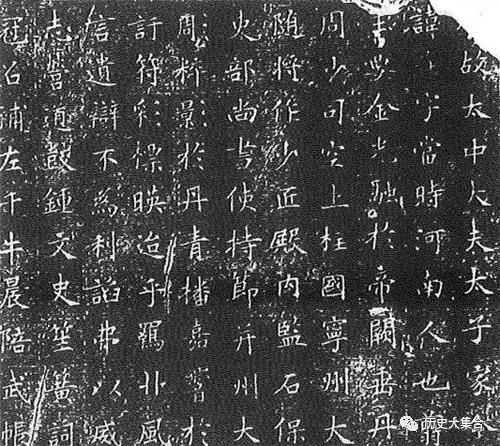 故太中大夫太子家
諱字當時河南人也
金光馳於帝闕垂丹
周少司空上柱國寧州大
隨將作少匠殿內監石保
吏部尚書使持節并州大
周粹影於丹青播嘉於
許符彩摽暎迨乎羈丱風
信遺辯不為利諂弗以威
志通鼓鍾文史笙簧詞
冠召補左千牛晨陪武帳
历史大集合